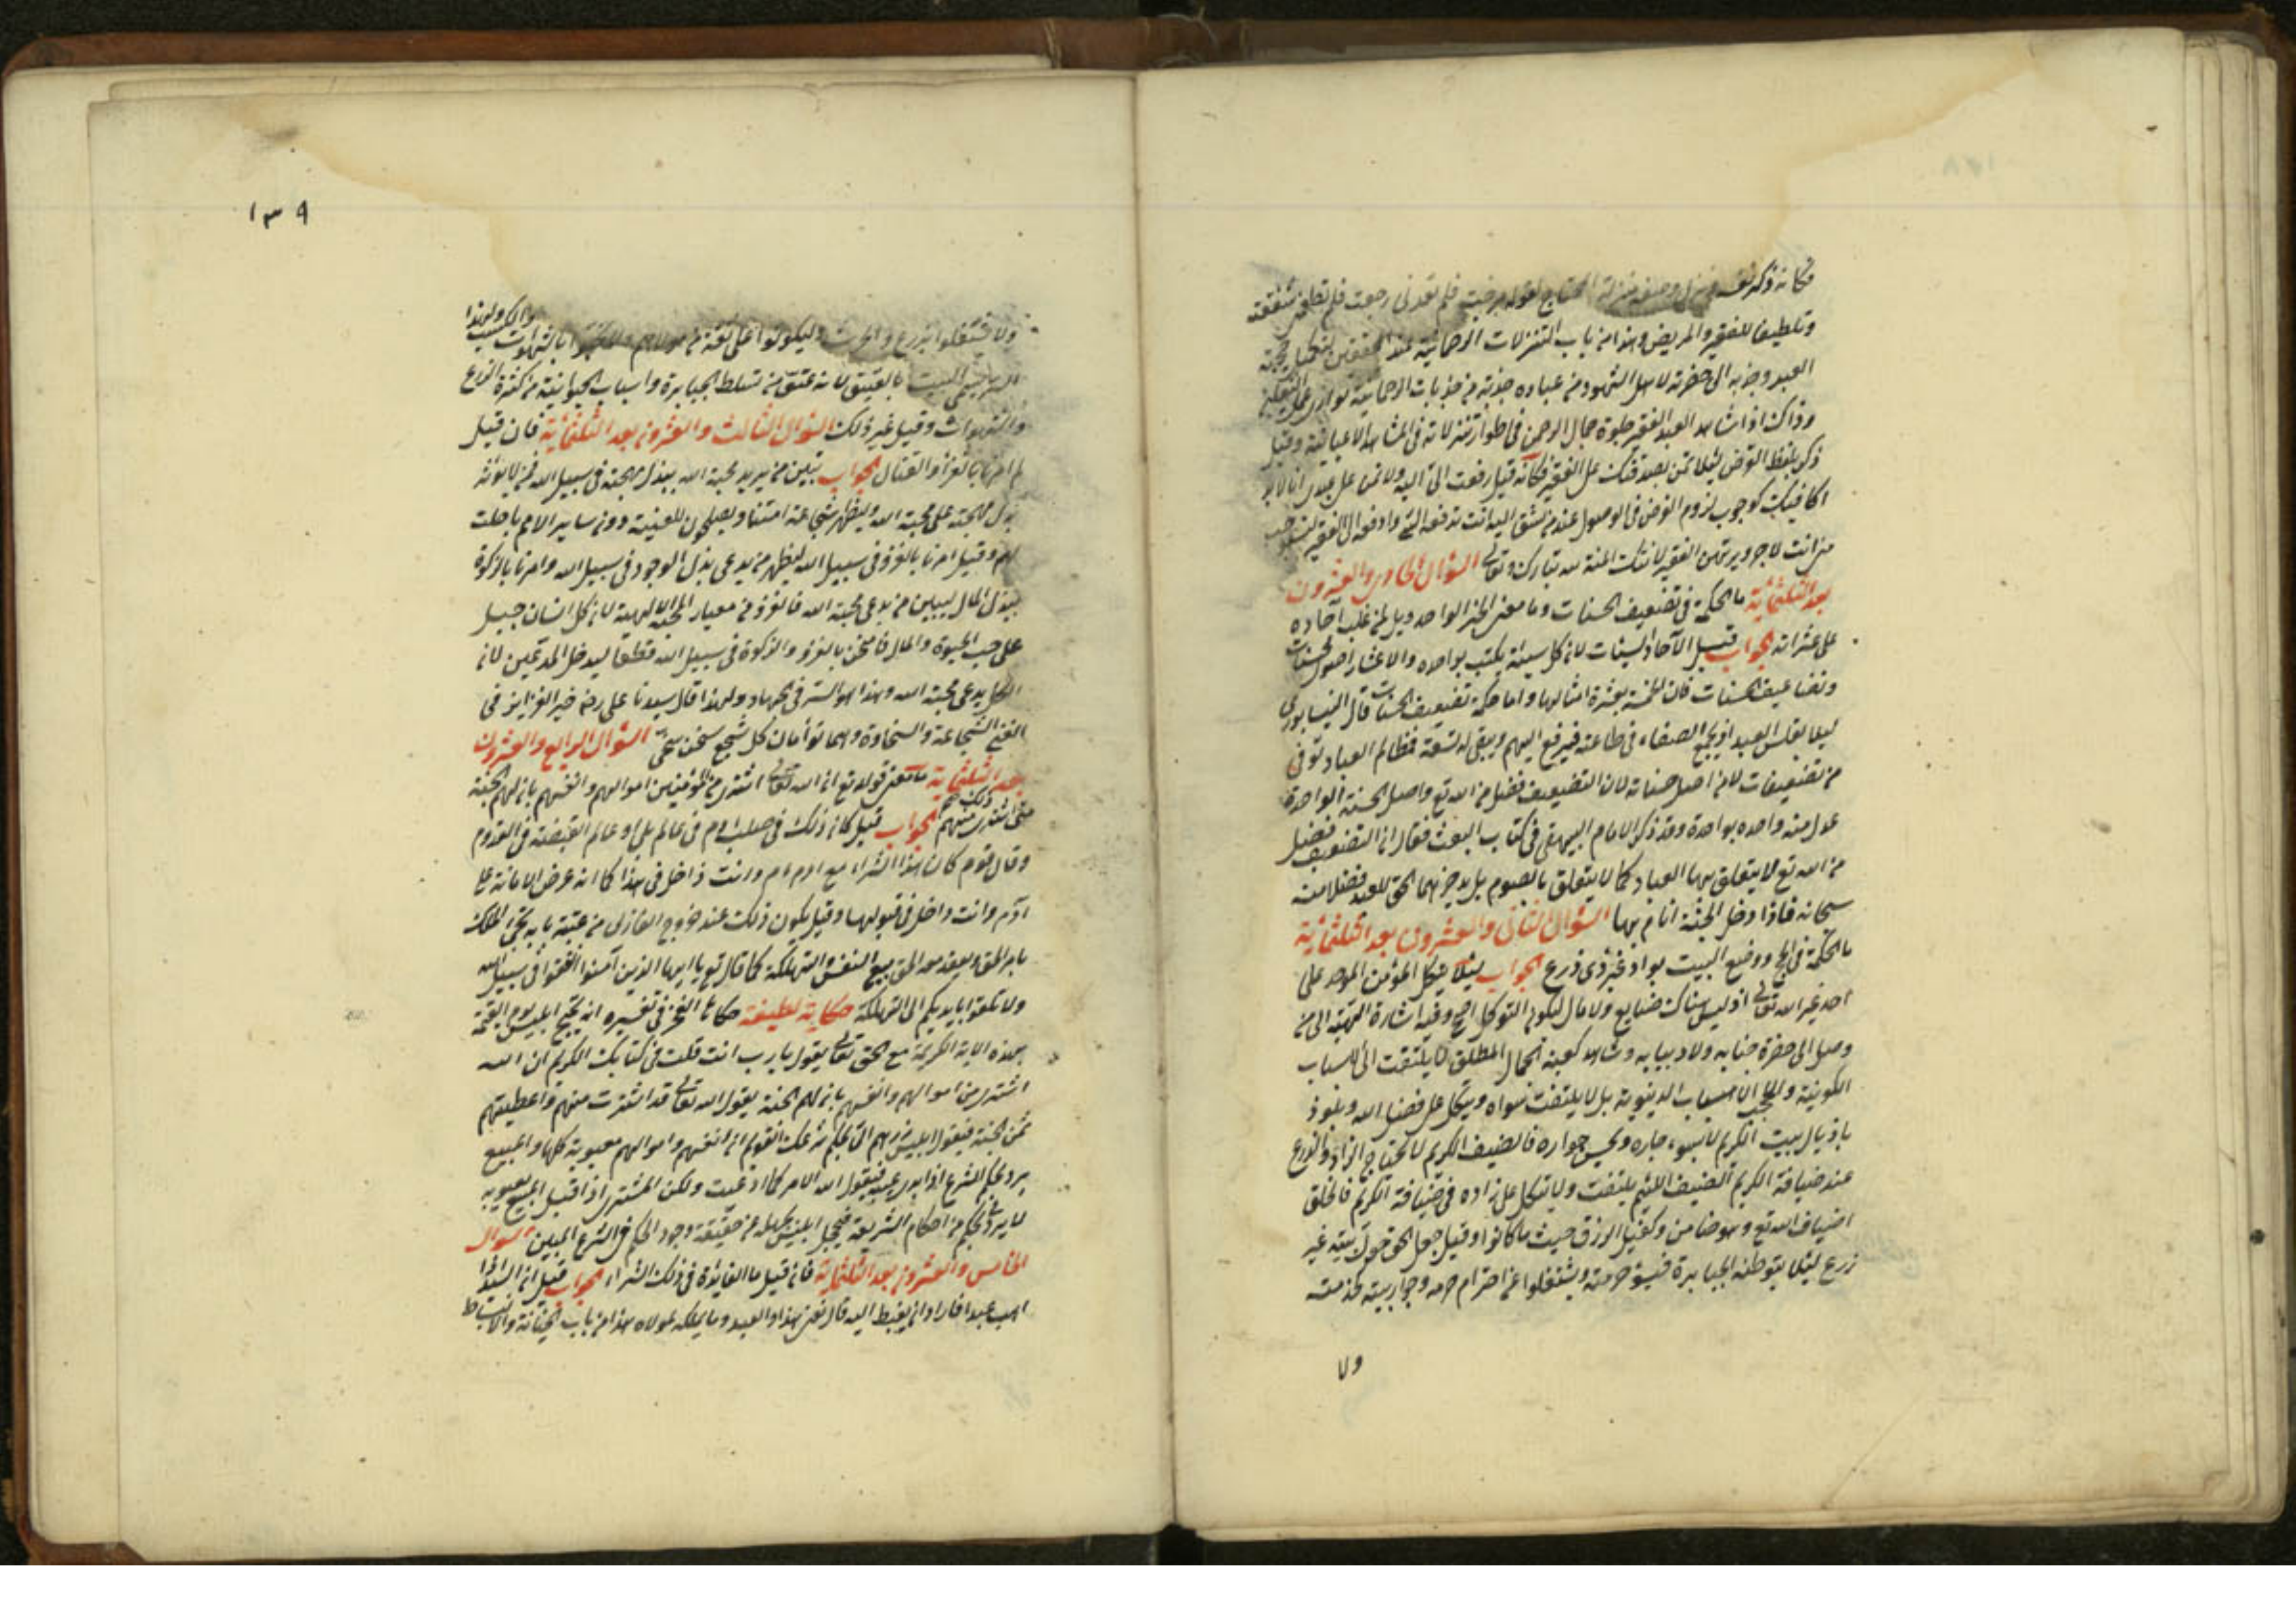 فكانه ذكر نفسه ونزل وصفه منزلة المحتاج لقوله مرضت فلم تعدني رجعت فلم تطعمني شفقة
وتلطيفا للفقير والمريض وهذا من باب التنزلات الرحمانية عند المحققين لتكميل محبة
العبد وجذبه الى حضرته لاهل الشهود من عباده جذبة من جذبات الرحمانية توازي عمل الثقلين
وذاك اذا شاهد العبد الفقير جلوة جمال الرحمن في اطوار تنزلاته في المشاهد الاعيانية وقيل
ذكر بلفظ القرض لئلا تمن بصدقتك على الفقير فكانه قيل رفعت الى اليه ولا تمن على عبدي انا
اكافيك كوجوب لزوم القرض في الوصول عند من تشق اليه انت تدفعه الي وادفعه الى الفقير
من انت لاجر ويرتهن الفقير لانك المنة لله تبارك وتعالى السؤال الحادي والعشرون
بعد الثلثمائة ما الحكمة في تضعيف الحسنات وما معنى الخبر الواحد ويل لمن غلب آحاده
على عشراته الجواب قيل الآحاد السيئات لان كل سيئة يكتب بواحده والاعشار اصول الحسنات
وتضاعيف الحسنات فان الحسنة بعشرة امثالها واما حكمة تضعيف الحسنات قال النيسابوري
ليلا يفلس العبد اذا يجمع الضعفاء في طاعته فيرفع اليهم ويبقى له تسعة فمظالم العباد توفى
من تضعيفات لا من اصل حسناته لان التضعيف فضل من الله تع واصل الحسنة الواحدة
عدل منه واحده بواحدة وقد ذكر الامام البيهقي في كتاب البعث فقال ان التضعيف فضل
من الله تع لا يتعلق بها العباد كما لا يتعلق بالصوم بل يدخرهما الحق للعبد فضلا منه
سبحانه فاذا دخل الجنة اثابه بها السؤال الثاني والعشرون بعد الثلثمائة
ما الحكمة في الحج ووضع البيت بواد غير ذي زرع الجواب لئلا يتكل المؤمن الموحد على
احد غير الله تعالى اذ ليس هناك ضايع ولا مال ليكون التوكل اصح وفيه اشارة التهيئة الى من
وصل الى حضرة جنابه ولاذ ببابه وشاهد كعبة الجمال المطلق لا يلتفت الى الاسباب
الكونية ولا الى الاسباب الدنيوية بل لا يلتفت سواه ويتكل على فضل الله ويلوذ
باذيال بيت الكريم لا يسوء جاره وبحسن جواره فالضيف الكريم لا يحتاج الزاد والزرع
عند ضيافة الكريم الضيف اللئيم يلتفت ولا يتكل على زاده في ضيافة الكريم فالخلق
اضياف الله تع وهو ضامن وكفيل الرزق حيث ما كانوا وقيل جعل الحق حول بيته غير
زرع لئلا يتوطنه الجبابرة فيسوء حرمته ويشتغلوا عن احترام حرمه وجوار بيته فذمته
ولا
١٣٩
ولا يشتغلوا بزرع والحرث وليكونوا على ثقة من مولاهم بالشهوات والكسب ولهذا
سمى البيت بالعتيق لانه عتق من تسلط الجبابرة واسباب الحيوانية من كثرة الزرع
والشهوات وقيل غير ذلك السؤال الثالث والعشرون بعد الثلثمائة فان قيل
لم امرنا بالغزا والقتال الجواب تبين من يريد محبة الله ببذل مهجته في سبيل الله فمن لا يؤثر
بذل مهجته على محبة الله وليظهر شجاعة امتنا ويصلحون للغنيمة دون ساير الامم ما حلت
لهم وقيل امرنا بالغزو في سبيل الله ليظهر من يدعي بذل الوجود في سبيل الله وامرنا بالزكوة
ببذل المال ليبين من يدعي محبة الله فالغزو من معيار المحبة الالهية لان كل انسان جبل
على حب الحيوة والمال فامتحن بالغزو والزكوة في سبيل الله قطعا ليدخل المدعين لان
الكل يدعي محبة الله وهذا هو السر في الجهاد ولهذا قال سيدنا علي رضه خير الغزايز في
الفتى الشجاعة والسخاوة وهما توأمان كل شجيع سخي السؤال الرابع والعشرون
بعد الثلثمائة ما معنى قوله تع ان الله تعالى اشترى من المؤمنين اموالهم وانفسهم بان لهم الجنة
متى اشترى ذلك منهم الجواب قيل كان ذلك في صلب آدم في عالم بلى وعالم القبضة في القدوم
وقال قوم كان هذا الشراء مع ادم ام وانت داخل في هذا كما انه عرض الامانة على
آدم وانت داخل في قبولها وقيل يكون ذلك عند خروج الغازي من عتبة بابه يجيء الملك
بامر الحق ويعقد مع الحق بيع النفس التهلكة كما قال تع يا ايها الذين آمنوا انفقوا في سبيل الله
ولا تلقوا بايديكم الى التهلكة حكاية لطيفة حكاها الفخر في تفسيره انه يحتج ابليس يوم القيمة
بهذه الاية الكريمة مع الحق تعالى يقول يا رب انت قلت في كتابك الكريم ان الله
اشترى من اموالهم وانفسهم بان لهم الجنة يقول الله تعالى قد اشتريت منهم واعطيتهم
ثمن الجنة فيقول ابليس نردهم اليّ بحكم شرعك القويم ان انفسهم واموالهم معيوبة كلها والمبيع
يرد بحكم الشرع اذا بدى عيبه فيقول الله الامر كما ادعيت ولكن المشتري اذا قبل المبيع بعيوبه
لا يرد بحكم من احكام الشريعة فيخجل ابليس بجهله من حقيقة وجود الحكم في الشرع المبين السؤال
الخامس والعشرون بعد الثلثمائة فان قيل ما الفايدة في ذلك الشراء الجواب قيل ان السيد اذا
احب عبدا فاراد ان ينبسط اليه قال بعني هذا والعبد وما يملكه لمولاه هذا من باب والانبساط